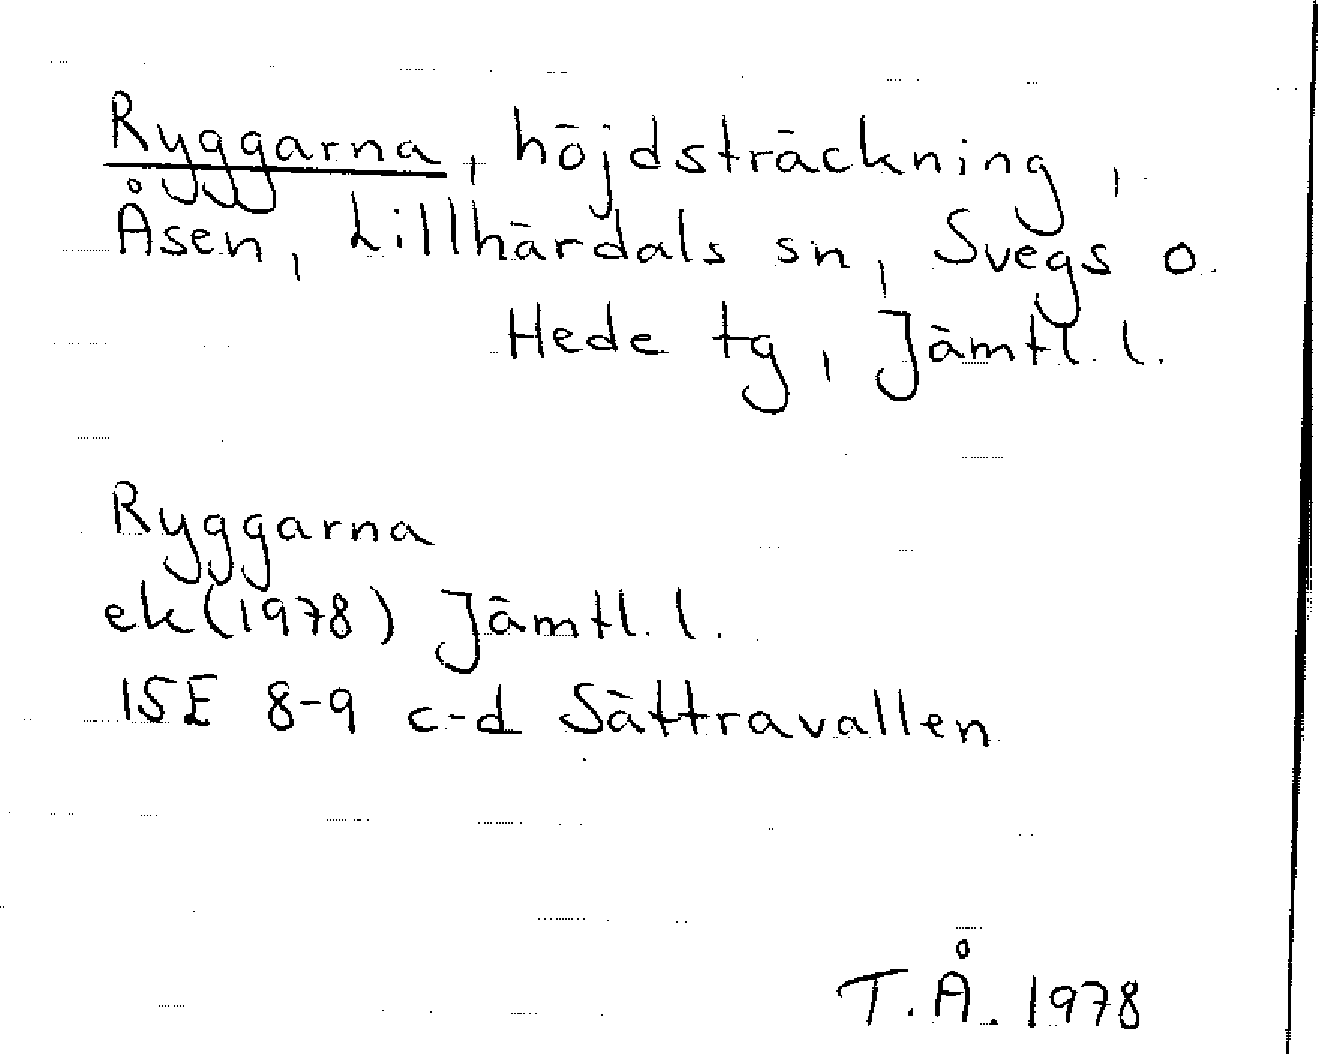 Ryggarna, höjdsträckning,
Åsen, Lillhärdals sn, Svegs o.
Hede tg, Jämtl. l.
Ryggarna
ek (1978) Jämtl. l.
15E 8-9 c-d Sättravallen
T.Å. 1978